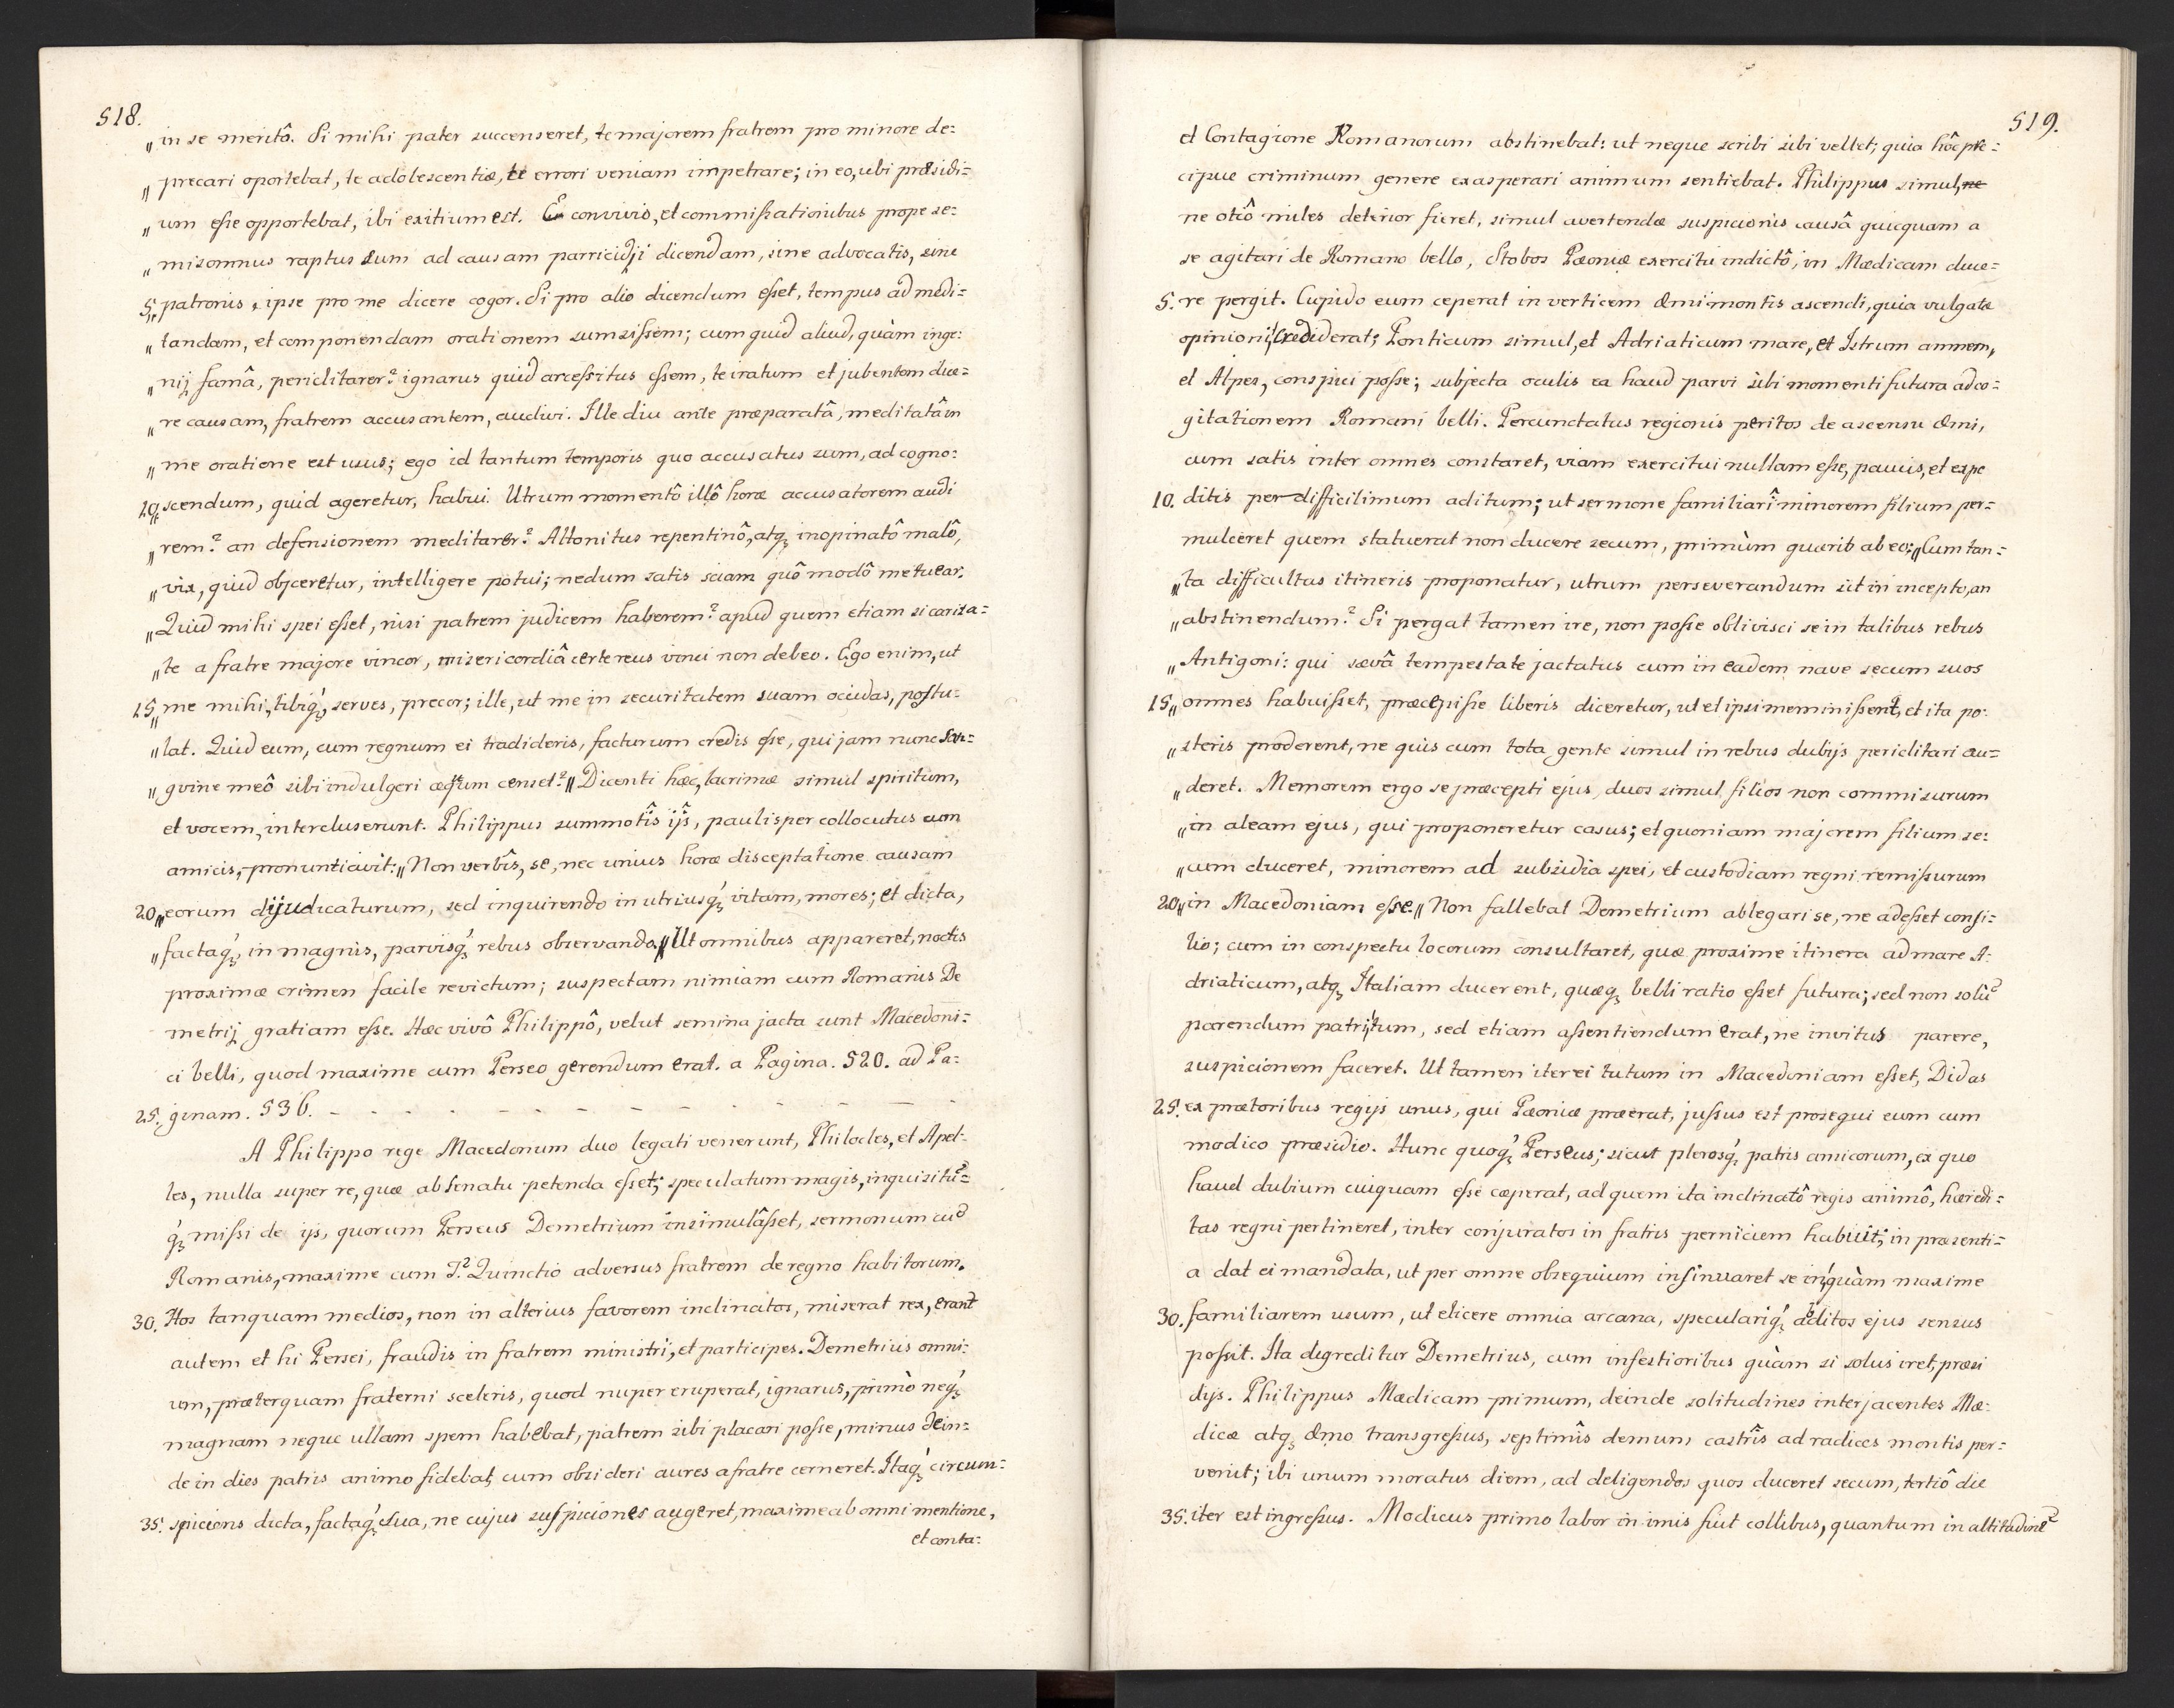 518.
„ in se meritô. Si mihi pater succenseret, te majorem fratrem pro minore de=
„ precari oportebat, te adolescentiæ, te errori veniam impetrare; in eo, ubi præsidi=
„ um esse opportebat, ibi exitium est. Ex convivio, et commissationibus prope se=
„ misomnus raptus sum ad causam parricidji dicendam, sine advocatis, sine
5. „ patronis, ipse pro me dicere cogor. Si pro alio dicendum esset, tempus ad medi=
„ tandam, et componendam orationem sumsissem; cum quid aliud, quàm inge=
„ nij famâ, periclitarer? ignarus quid arcessitus essem, te iratum et jubentem dice=
„ re causam, fratrem accusantem, audivi. Ille diu ante præparatâ, meditatâ in
„ me oratione est usus; ego id tantum temporis quo accusatus sum, ad cogno=
10. „ scendum, quid ageretur, habui. Utrum momentô illô horæ accusatorem audi
„ rem? an defensionem meditarer? Attonitus repentinô, atq; inopinatô malô,
„ vix, quid objceretur, intelligere potui; nedum satis sciam quô modô me tuear.
„ Quid mihi spei esset, nisi patrem judicem haberem? apud quem etiam si carita=
„ te a fratre majore vincor, misericordiâ certe reus vinci non debeo. Ego enim, ut
15. „ me mihi, tibiq;, serves, precor; ille, ut me in securitatem suam occidas, postu=
„ lat. Quid eum, cum regnum ei tradideris, facturum credis esse, qui jam nunc san=
„ gvine meô sibi indulgeri æqum censet? „ Dicenti hæc, lacrimæ simul spiritum,
et vocem, intercluserunt. Philippus summotîs ijs, paulisper collocutus cum
amicis, pronuntiavit: „ Non verbîs, se, nec unius horæ disceptatione causam
20. „ eorum dijudicaturum, sed inquirendo in utriusq; vitam, mores; et dicta,
„ factaq; in magnis, parvisq; rebus observando. „ Ut omnibus appareret, noctis
proximæ crimen facile revictum; suspectam nimiam cum Romanis De
metrij gratiam esse. Hæc vivô Philippô, velut semina jacta sunt Macedoni=
ci belli, quod maxime cum Perseo gerendum erat. a Pagina. 520. ad Pa=
25. ginam. 536. - - - - - - - - - - - -
A Philippo rege Macedonum duo legati venerunt, Philocles, et Apel=
les, nulla super re, quæ ab Senatu petenda esset; speculatum magis, inquisitũ=
q; missi de ijs, quorum Perseus Demetrium insimulâsset, sermonum cũ
Romanis, maxime cum T. Quinctio adversus fratrem de regno habitorum.
30. Hos tanquam medios, non in alterius favorem inclinatos, miserat rex, erant
autem et hi Persei, fraudis in fratrem ministri, et participes. Demetrius omni=
um, præterquam fraterni sceleris, quod nuper eruperat, ignarus, primò neq;
magnam neque ullam spem habebat, patrem sibi placari posse, minus dein=
de in dies patris animo fidebat, cum obsideri aures a fratre cerneret. Itaq; circum=
35. spiciens dicta, factaq; sua, ne cujus suspiciones augeret, maxime ab omni mentione,
et conta=
519.
et Contagione Romanorum abstinebat: ut neque scribi sibi vellet; quia hôc præ=
cipue criminum genere exasperari animum sentiebat. Philippus simul, ne
ne otiô miles deterior fieret, simul avertendæ suspicionis causâ quicquam a
se agitari de Romano bello, Stobos Pæoniæ exercitu indictô, in Mædicam duce=
5. re pergit. Cupido eum ceperat in verticem Æmi montis ascendi, quia vulgatæ
opinioni, crediderat; Ponticum simul, et Adriaticum mare, et Istrum amnem,
et Alpes, conspici posse; subjecta oculis ea haud parvi sibi momenti futura ad co=
gitationem Romani belli. Percunctatus regionis peritos de ascensu Æmi,
cum satis inter omnes constaret, viam exercitui nullam esse, paucis, et expe
10. ditis per difficilimum aditum; ut sermone familiarî minorem filium per=
mulceret quem statuerat non ducere secum, primùm quærit ab eo: „ Cum tan=
„ ta difficultas itineris proponatur, utrum perseverandum sit in incepto, an
„ abstinendum? Si pergat tamen ire, non posse oblivisci se in talibus rebus
„ Antigoni: qui sævâ tempestate jactatus cum in eadem nave secum suos
15. „ omnes habuisset, præcepisse liberis diceretur, ut et ipsi meminissent, et ita po=
„ steris proderent, ne quis cum tota gente simul in rebus dubijs periclitari au=
„ deret. Memorem ergo se præcepti ejus, duos simul filios non commisurum
„ in aleam ejus, qui proponeretur casus; et quoniam majorem filium se=
„ cum duceret, minorem ad subsidia spei, et custodiam regni remissurum
20. „ in Macedoniam esse. „ Non fallebat Demetrium ablegari se, ne adesset consi=
lio; cum in conspectu locorum consultaret, quæ proxime itinera ad mare A=
driaticum, atq; Italiam ducerent, quæq; belli ratio esset futura; sed non solũ
parendum patri tum, sed etiam assentiendum erat, ne invitus parere,
suspicionem faceret. Ut tamen iter ei tutum in Macedoniam esset, Didas
25. ex prætoribus regijs unus, qui Pæoniæ præerat, jussus est prosequi eum cum
modico præsidio. Hunc quoq; Perseus; sicut plerosq; patris amicorum, ex quo
haud dubium cuiquam esse cæperat, ad quem ita inclinatô regis animô, hæredi=
tas regni pertineret, inter conjuratos in fratris perniciem habuit; in præsenti=
a dat ei mandata, ut per omne obsequium insinuaret se in quàm maxime
30. familiarem usum, ut elicere omnia arcana, speculariq; abditos ejus sensus
possit. Ita degreditur Demetrius, cum infestioribus quàm si solus iret, præsi
dijs. Philippus Mædicam primum, deinde solitudines interjacentes Mæ=
dicæ atq; Æmo transgressus, septimîs demum castrîs ad radices montis per=
venit; ibi unum moratus diem, ad deligendos quos duceret secum, tertiô die
35. iter est ingressus. Modicus primo labor in imis fuit collibus, quantum in altitudinẽ